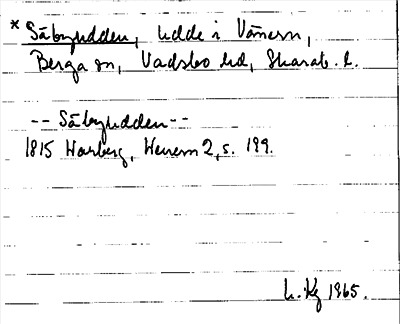 * Säbyudden, udde i Vänern,
Berga sn, Vadsbo hd, Skarab. l.
-- Säbyudden --
1815 Warberg, Wenern 2, s. 199.
L. Kg 1965.